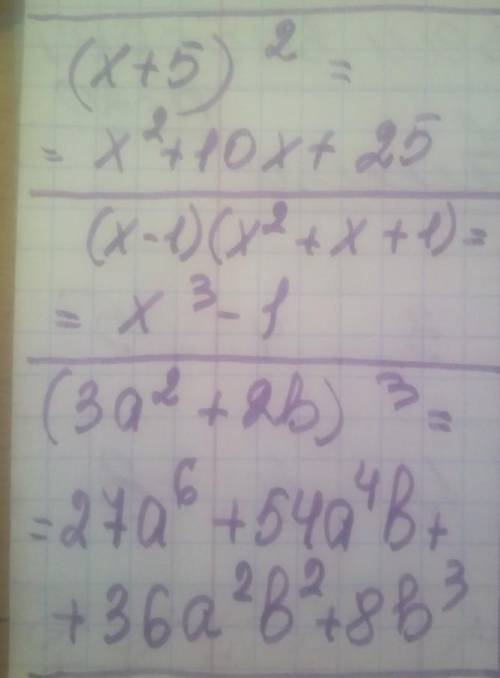 (x+5)² =
= x²+10x+25
(x-1)(x²+x+1)=
= x³-1
(3a²+2b)³=
=27a⁶+54a⁴b+
+36a²b²+8b³